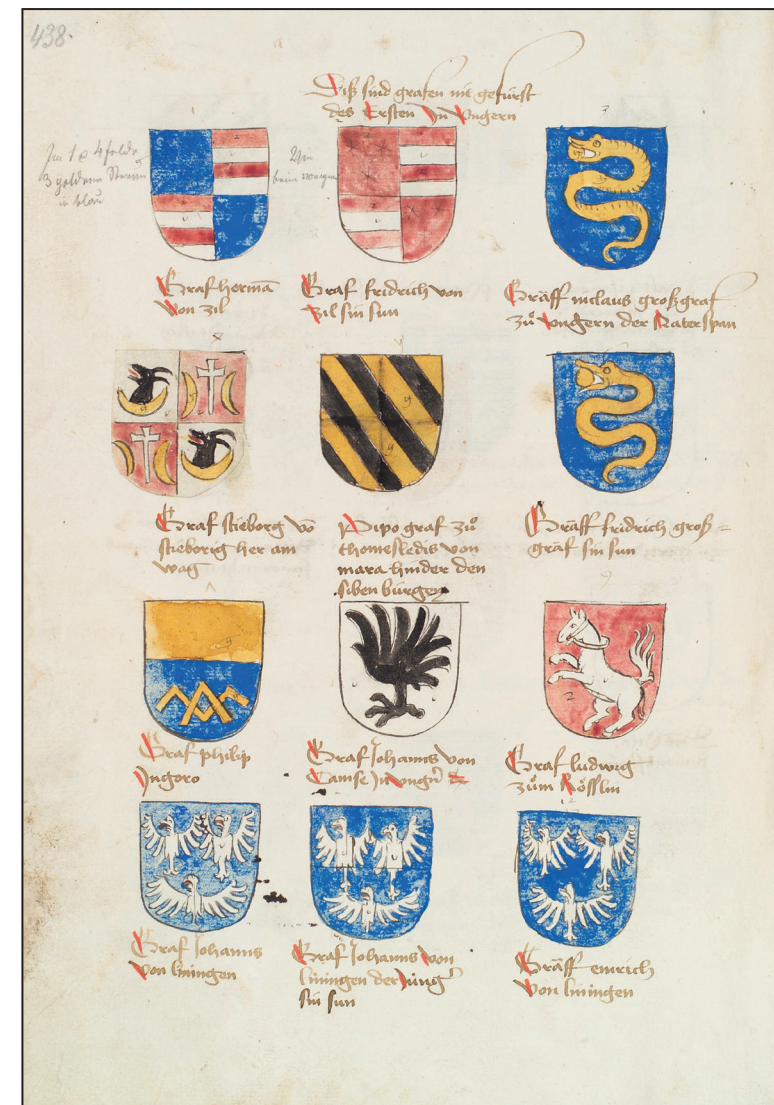 438.
Diß sind grafen nit gefürst
des Ersten Jn Vngern
Jm 1 & 4 felde
3 goldene Sterne
in blau
Graf herman
von zil
Graf fridrich von
zil sin sun
Gräff niclaus großgraf
zů vngern der Waterspan
Graf stieborg võ
stieborig her am
wag
Pipo graf zů
thomesledis von
mara hinder den
siben bürgen
Gräff fridrich groß=
graf sin sun
Graf philip
Jngoro
Graf Johanns von
Camse Jn vngrñ
Graf ludwig
zům Rösslin
Graf Johanns
von liningen
Graf Johanns von
liningen der Jüng
sin sun
Gräff emrich
von liningen